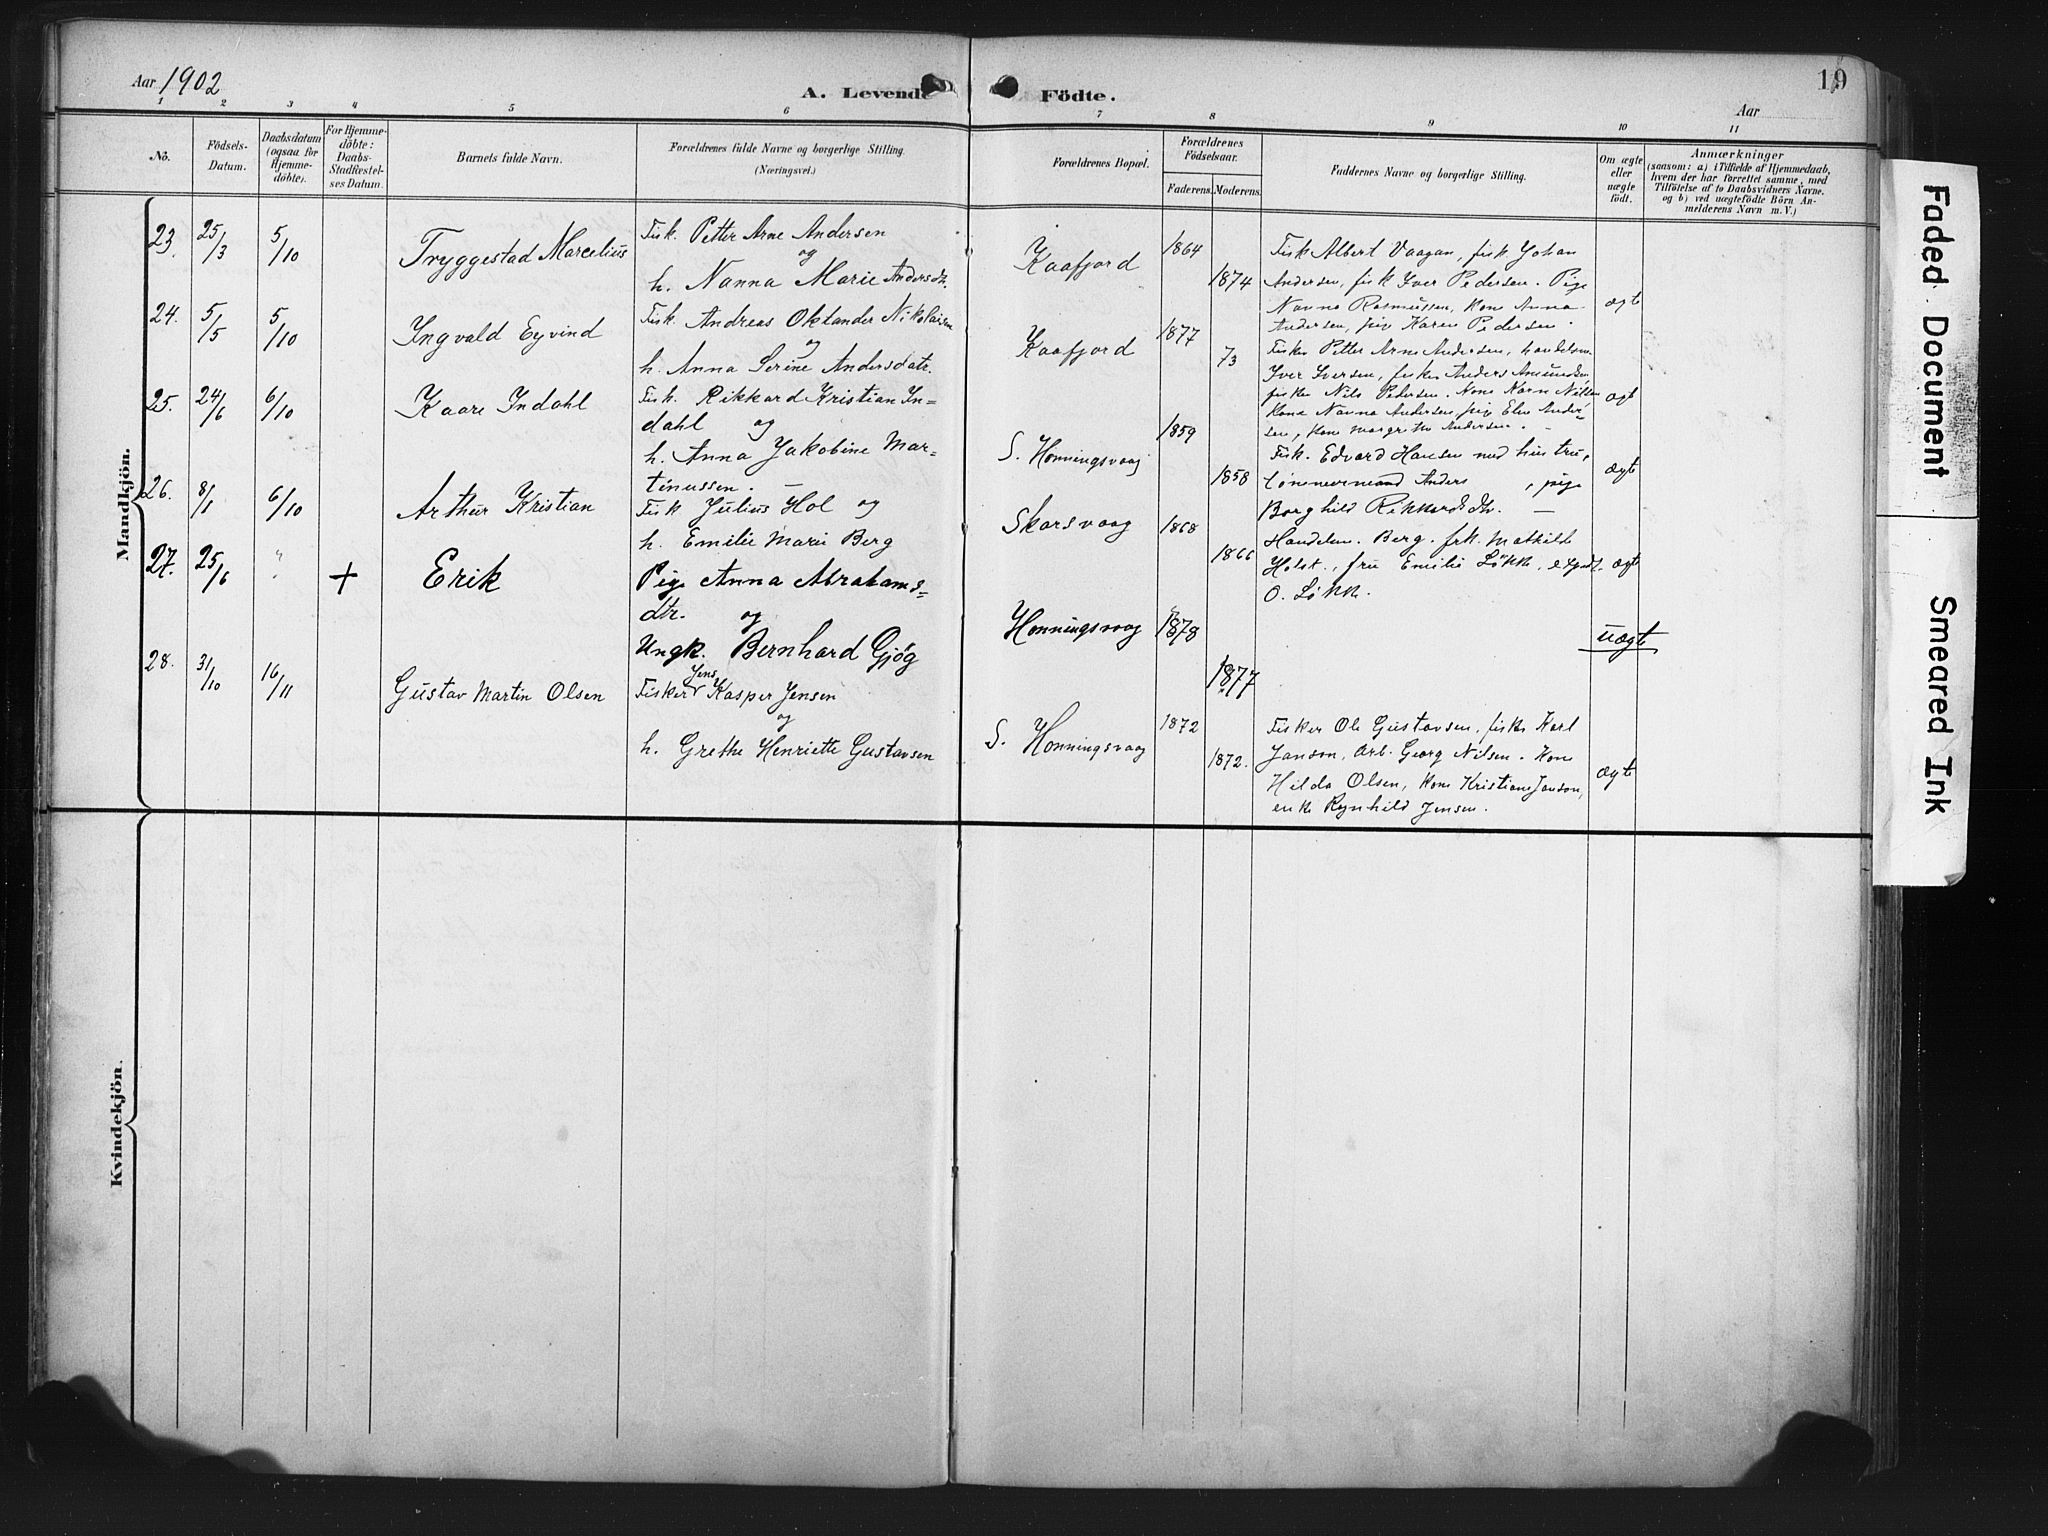 Aar 1902
A. Levende Födte.
19
Aar
1 2 3 4 5 6 7 8 9 10 11
No.
Födsels-
Datum.
Daabsdatum
(ogsaa for
Hjemme-
döbte).
For Hjemme-
döbte:
Daabs-
Stadfæstel-
ses Datum.
Barnets fulde Navn.
Forældrenes fulde Navne og borgerlige Stilling.
(Næringsvei.)
Forældrenes Bopæl.
Forældrenes
Födselsaar.
Faderens. Moderens.
Faddernes Navne og borgerlige Stilling.
Om ægte
eller
uægte
födt.
Anmærkninger
(saasom: a) i Tilfælde af Hjemmedaab,
hvem der har forrettet samme, med
Tilföielse af to Daabsvidners Navne.
og b) ved uægtefödte Börn An-
melderens Navn m. V.)
Mandkjön.
23. 25/3 5/10 Tryggestad Marcelius
Fisk. Petter Arne Andersen
og
h. Nanna Marie Andersdtr.
Kaafjord 1864
1874
Fisk Albert Vaagan, fisk Johan
Andersen, fisk Iver Pedersen. Pige
Nanna Rasmussen, kone Anna
Andersen, pige Karen Pedersen.
ægte
24. 5/5 5/10 Ingvald Eyvind
Fisk. Andreas Oktander Nikolaisen
og
h. Anna Serine Andersdatr.
Kaafjord 1877
73
Fisker Petter Arne Andersen, handelsm.
Iver Iversen, fisker Anders Amundsen
fisker Nils Pedersen. Kone Karn Nilsen
Kone Nanna Andersen, pige Elen Ander-
sen, kone Margrethe Andersen.
ægte
25. 24/6 6/10 Kaare Indahl
Fisk. Rikkard Kristian In=
dahl og
h. Anna Jakobine Mar=
tinussen.
S. Honningsvaag 1859
1858
Fisk. Edvard Hansen med hustru,
Anders , pige
Borghild Rikkardsdtr.
ægte
26. 8/8 6/10 Arthur Kristian
Fisk Julius Hol og
h. Emilie Marie Berg
Skarsvaag 1868
1866
Handelsm. Berg. frk. Mathilde
Holst., fru Emilie Løkke, expdt.
O. Løkke.
ægte
27. 25/6 " + Erik
Pige Anna Abrahams=
dtr. og
Ungk. Bernhard Gjøg
Honningsvaag 1878
1877
uægte
28. 31/10 16/11 Gustav Martin Olsen
Fisker Jens Kasper Jensen
og
h. Grethe Henriette Gustavsen
S. Honningsvaag 1872
1872.
Fisker Ole Gustavsen, fisker Karl
Janson, arb. Georg Nilsen. Kone
Hilda Olsen, kone Kristiane Janson,
enke Rynhild Jensen.
ægte
Kvindekjön.
Faded Document
Smeared Ink